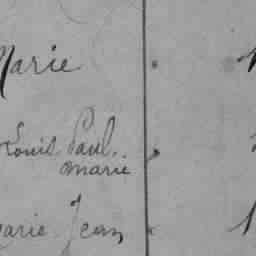 Marie
Louis Paul
marie
Marie Jean